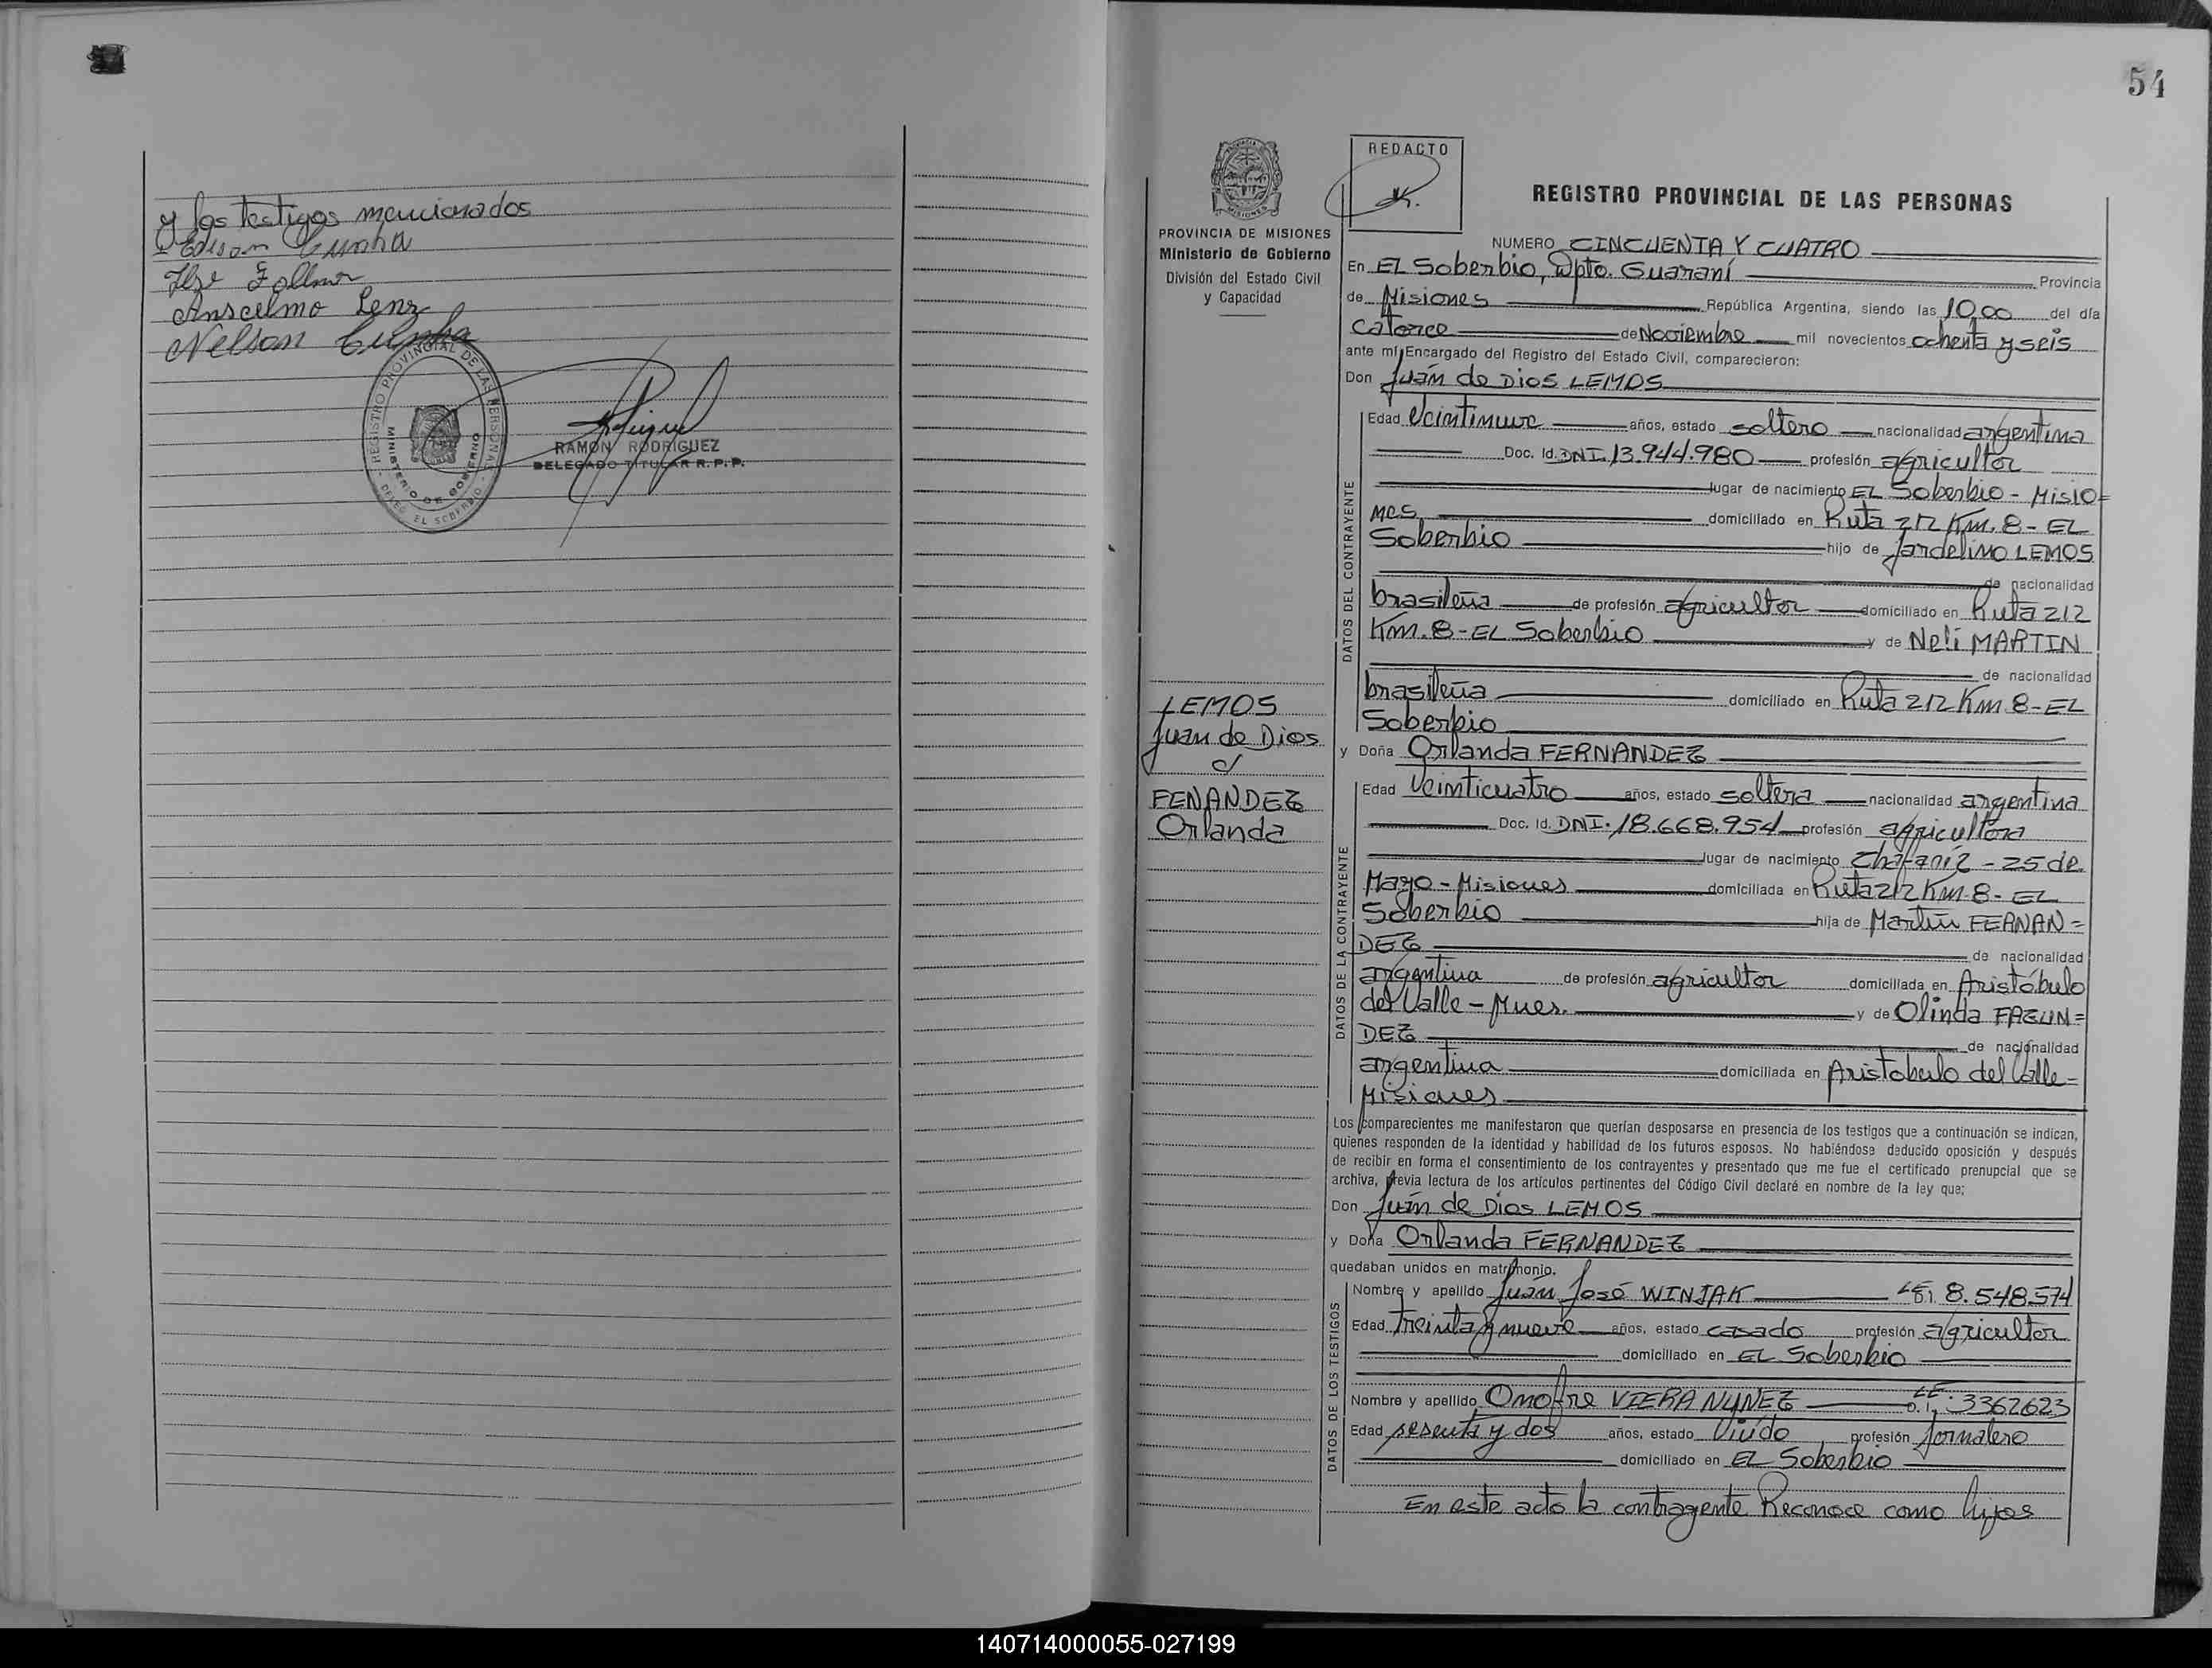 y los testigos mencionados
Edison Cunha
Ilse Follmer
Anselmo Lenz
Nelson Cunha
REGISTRO PROVINCIAL DE LAS PERSONAS
MINISTERIO DE GOBIERNO
DELEG. EL SOBERBIO
RAMON RODRIGUEZ
DELEGADO TITULAR R.P.P.
54
PROVINCIA DE MISIONES
Ministerio de Gobierno
División del Estado Civil
y Capacidad
REDACTO
REGISTRO PROVINCIAL DE LAS PERSONAS
NUMERO CINCUENTA Y CUATRO
En EL Soberbio, Dpto. Guaraní Provincia
de Misiones República Argentina, siendo las 10,00 del día
catorce de Noviembre mil novecientos ochenta y seis
ante mí, Encargado del Registro del Estado Civil, comparecieron:
Don Juán de Dios LEMOS
DATOS DEL CONTRAYENTE
Edad Veintinueve años, estado soltero nacionalidad argentina
Doc. Id. DNI. 13.944.980 profesión agricultor
lugar de nacimiento EL Soberbio - Misio=
nes domiciliado en Ruta 212 Km. 8 - EL
Soberbio hijo de Jardelino LEMOS
de nacionalidad
brasileña de profesión agricultor domiciliado en Ruta 212
Km. 8 - EL Soberbio y de Neli MARTIN
de nacionalidad
brasileña domiciliado en Ruta 212 Km 8 - EL
Soberbio
LEMOS
Juan de Dios
c/
FENANDEZ
Orlanda
y Doña Orlanda FERNANDEZ
DATOS DE LA CONTRAYENTE
Edad Veinticuatro años, estado soltera nacionalidad argentina
Doc. Id. DNI. 18.668.954 profesión agricultora
lugar de nacimiento - 25 de
Mayo - Misiones domiciliada en Ruta 212 Km. 8 - EL
Soberbio hija de Martín FERNAN=
DEZ de nacionalidad
argentina de profesión agricultor domiciliada en Aristóbulo
del Valle - Mnes. y de Olinda FAGUN=
DEZ de nacionalidad
argentina domiciliada en Aristobulo del Valle -
Misiones
Los comparecientes me manifestaron que querían desposarse en presencia de los testigos que a continuación se indican,
quienes responden de la identidad y habilidad de los futuros esposos. No habiéndose deducido oposición y después
de recibir en forma el consentimiento de los contrayentes y presentado que me fue el certificado prenupcial que se
archiva, previa lectura de los artículos pertinentes del Código Civil declaré en nombre de la ley que;
Don Juán de Dios LEMOS
y Doña Orlanda FERNANDEZ
quedaban unidos en matrimonio.
DATOS DE LOS TESTIGOS
Nombre y apellido Juán José WINJAK 8.548.574
Edad Treinta y nueve años, estado casado profesión agricultor
domiciliado en EL Soberbio
Nombre y apellido Onofre VIERA NUNEZ LE. D.I. 3362623
Edad sesenta y dos años, estado Viúdo profesión Jornalero
domiciliado en EL Soberbio
En este acto la contrayente Reconoce como hijos
140714000055-027199